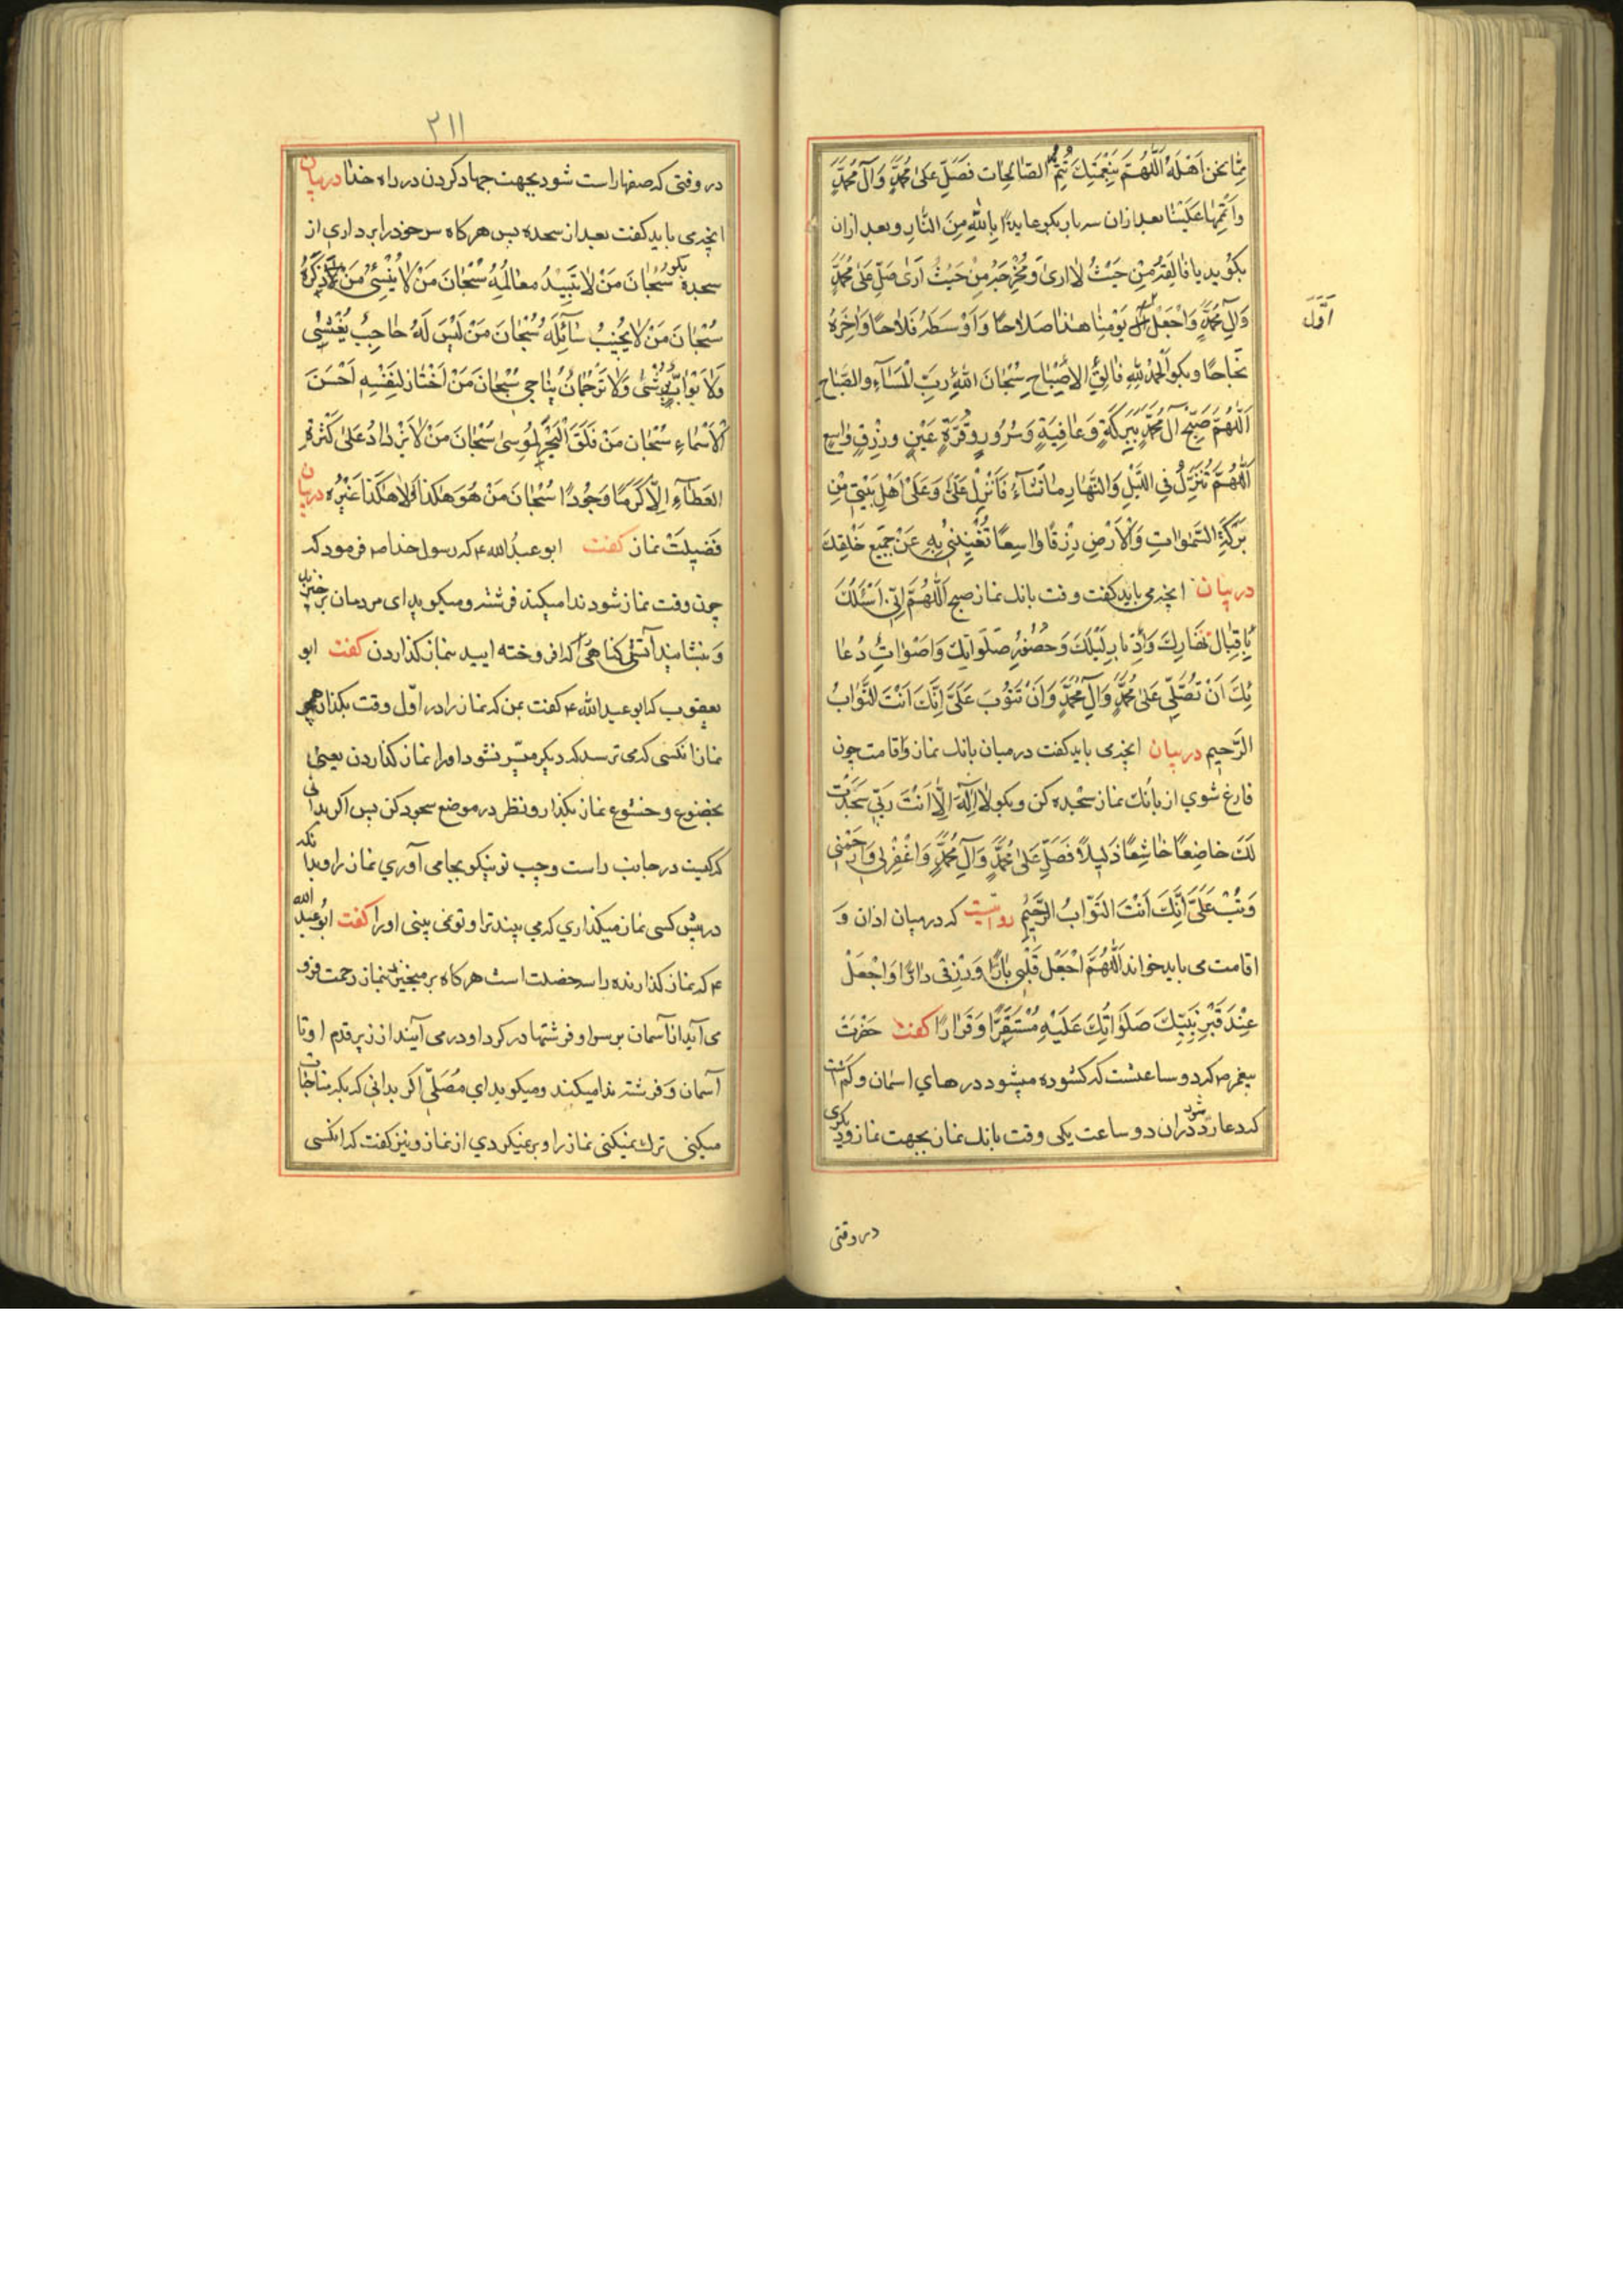 مِمّا نحن اَهْلَهُ اَللّهُمَّ بِنِعْمَتِكَ تَتِمُّ الصّالِحات فَصَلِّ عَلىٰ مُحَمَّدٍ وَآلِ مُحَمَّدٍ
وَاَتْمِمْها عَلَیْنا بعد ازان سه بار بكو عایدًا بِاللّهِ مِنَ النّارِ و بعد ازان
بكوید یا فالِقَهُ مِنْ حَیْثُ لا اَرىٰ وَمُخْرِجَهُ مِنْ حَیْثُ اَرىٰ صَلِّ عَلىٰ مُحَمَّدٍ
وَآلِ مُحَمَّدٍ وَاجْعَلْ اَوَّلَ یَوْمِنا هذا صَلاحًا وَاَوْسَطَهُ فَلاحًا وَآخِرَهُ
اَوَّلَ
نَجاحًا وبكو اَلْحَمْدُ لِلّهِ فالِقِ الاَصْباحِ سُبْحانَ اللّهِ رَبِّ الْمَسآءِ وَالصَّباحِ
اَللّهُمَّ صَبِّحْ آلَ مُحَمَّدٍ بِبَرَكَةٍ وَعافِیَةٍ وَسُرُورٍ وَقُرَّةِ عَیْنٍ ورِزْقٍ واسِعٍ
اَللّهُمَّ تُنَزِّلُ فِی اللَّیْلِ وَالنَّهارِ ما تَشآءُ فَاَنْزِلْ عَلَیَّ وَعَلىٰ اَهْلِ بَیْتی مِنْ
بَرَكَةِ السَّمٰواتِ وَالْاَرْضِ رِزْقًا واسِعًا تُغْنینی بِهِ عَنْ جَمیعِ خَلْقِكَ
در بیان انچه می باید كفت وقت بانك نماز صبح اَللّهُمَّ اِنّی اَسْئَلُكَ
بِاِقْبالِ نَهارِكَ وَاِدْبارِ لَیْلَكَ وَحُضُورِ صَلَواتِكَ وَاَصْواتِ دُعا
ئِكَ اَنْ تُصَلِّیَ عَلىٰ مُحَمَّدٍ وَآلِ مُحَمَّدٍ وَاَنْ تَتُوبَ عَلَیَّ اِنَّكَ اَنْتَ التَّوّابُ
الرَّحیم در بیان انچه می باید كفت در میان بانك نماز واقامت چون
فارغ شوی از بانك نماز سجده كن و بكو لا اِلهَ اِلاّ اَنْتَ رَبّی سَجَدْتُ
لَكَ خاضِعًا خاشِعًا ذَلیلاً فَصَلِّ عَلىٰ مُحَمَّدٍ وَآلِ مُحَمَّدٍ وَاغْفِرْ لی وَارْحَمْنی
وَتُبْ عَلَیَّ اِنَّكَ اَنْتَ التَّوّابُ الرَّحیمُ روایتست كه در میان اذان و
اقامت می باید خواند اَللّهُمَّ اجْعَلْ قَلْبی بارًّا وَرِزْقی دارًّا وَاجْعَلْ
عِنْدَ قَبْرِ نَبِیِّكَ صَلَواتُكَ عَلَیْهِ مُسْتَقَرًّا وَقَرارًا كفت حَضْرَتْ
پیغمبر ص كه دو ساعتست كه كشوده میشود درهای اسمان و كم است
كه دعا ردّ شود دران دو ساعت یكی وقت بانك نماز بجهت نماز و دیكری
در وقتی
٢١١
در وقتی كه صفها راست شود بجهت جهاد كردن در راه خدا در بیان
انچه می باید كفت بعد از سجده پس هر كاه سر خود را برداری از
سجده بكو سُبْحانَ مَنْ لا تَبیدُ مَعالِمُهُ سُبْحانَ مَنْ لا یَنْسىٰ مَنْ ذَكَرَهُ
سُبْحانَ مَنْ لا یُخَیِّبُ سآئِلَهُ سُبْحانَ مَنْ لَیْسَ لَهُ حاجِبٌ یُغْشىٰ
وَلا بَوّابٌ یُرْشىٰ وَلا تَرْجُمانٌ یُناجی سُبْحانَ مَنْ اَخْتارَ لِنَفْسِهِ اَحْسَنَ
الْاَسْماءِ سُبْحانَ مَنْ فَلَقَ الْبَحْرَ لِمُوسىٰ سُبْحانَ مَنْ لا یَزْدادُ عَلىٰ كَثْرَةِ
العَطآءِ اِلاّ كَرَمًا وَجُودًا سُبْحانَ مَنْ هُوَ هٰكَذا وَلا هٰكَذا غَیْرُه در بیان
فَضیلَتْ نماز كفت ابو عبدُ الله ع كه رسول خدا ص فرمود كه
چون وقت نماز شود ندا میكند فرشته و میكوید ای مردمان برخیزید
و بنشانید آتش كناهی را كه افروخته ایید بنماز كذاردن كفت ابو
یعقوب كه ابو عبد الله ع كفت بمن كه نماز را در اوّل وقت بكذار همچو
نماز انكسی كه می ترسد كه دیكر میسّر نشود او را نماز كذاردن یعنی
بخضوع و خشوع نماز بكذار و نظر در موضع سجود كن پس اكر بدانی
كه كیست در جانب راست و چپ تو نیكو بجا می آوری نماز را و بدانكه
در پیش كسی نماز میكذاری كه می بیند ترا و تو نمی بینی او را كفت ابُو عبد الله
ع كه نماز كذارنده را سه خصلت است هر كاه بر میخیزد بنماز رحمت فرو
می آید از آسمان بر سر او و فرشتها در كرد او در می آیند از زیر قدم او تا
آسمان و فرشته ندا میكند و میكوید ای مُصَلّی اكر بدانی كه بكه مناجات
میكنی ترك نمیكنی نماز را و بر نمیكردی از نماز و نیز كفت كه انكسی